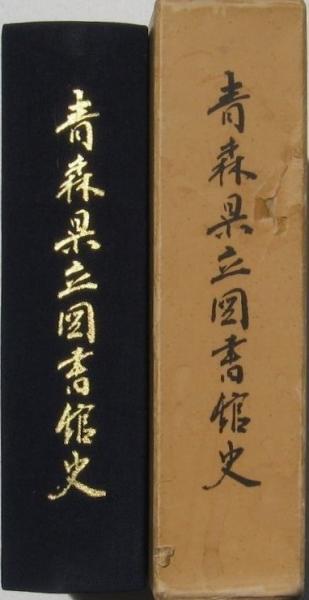 青森県立図書館史
青森県立図書館史